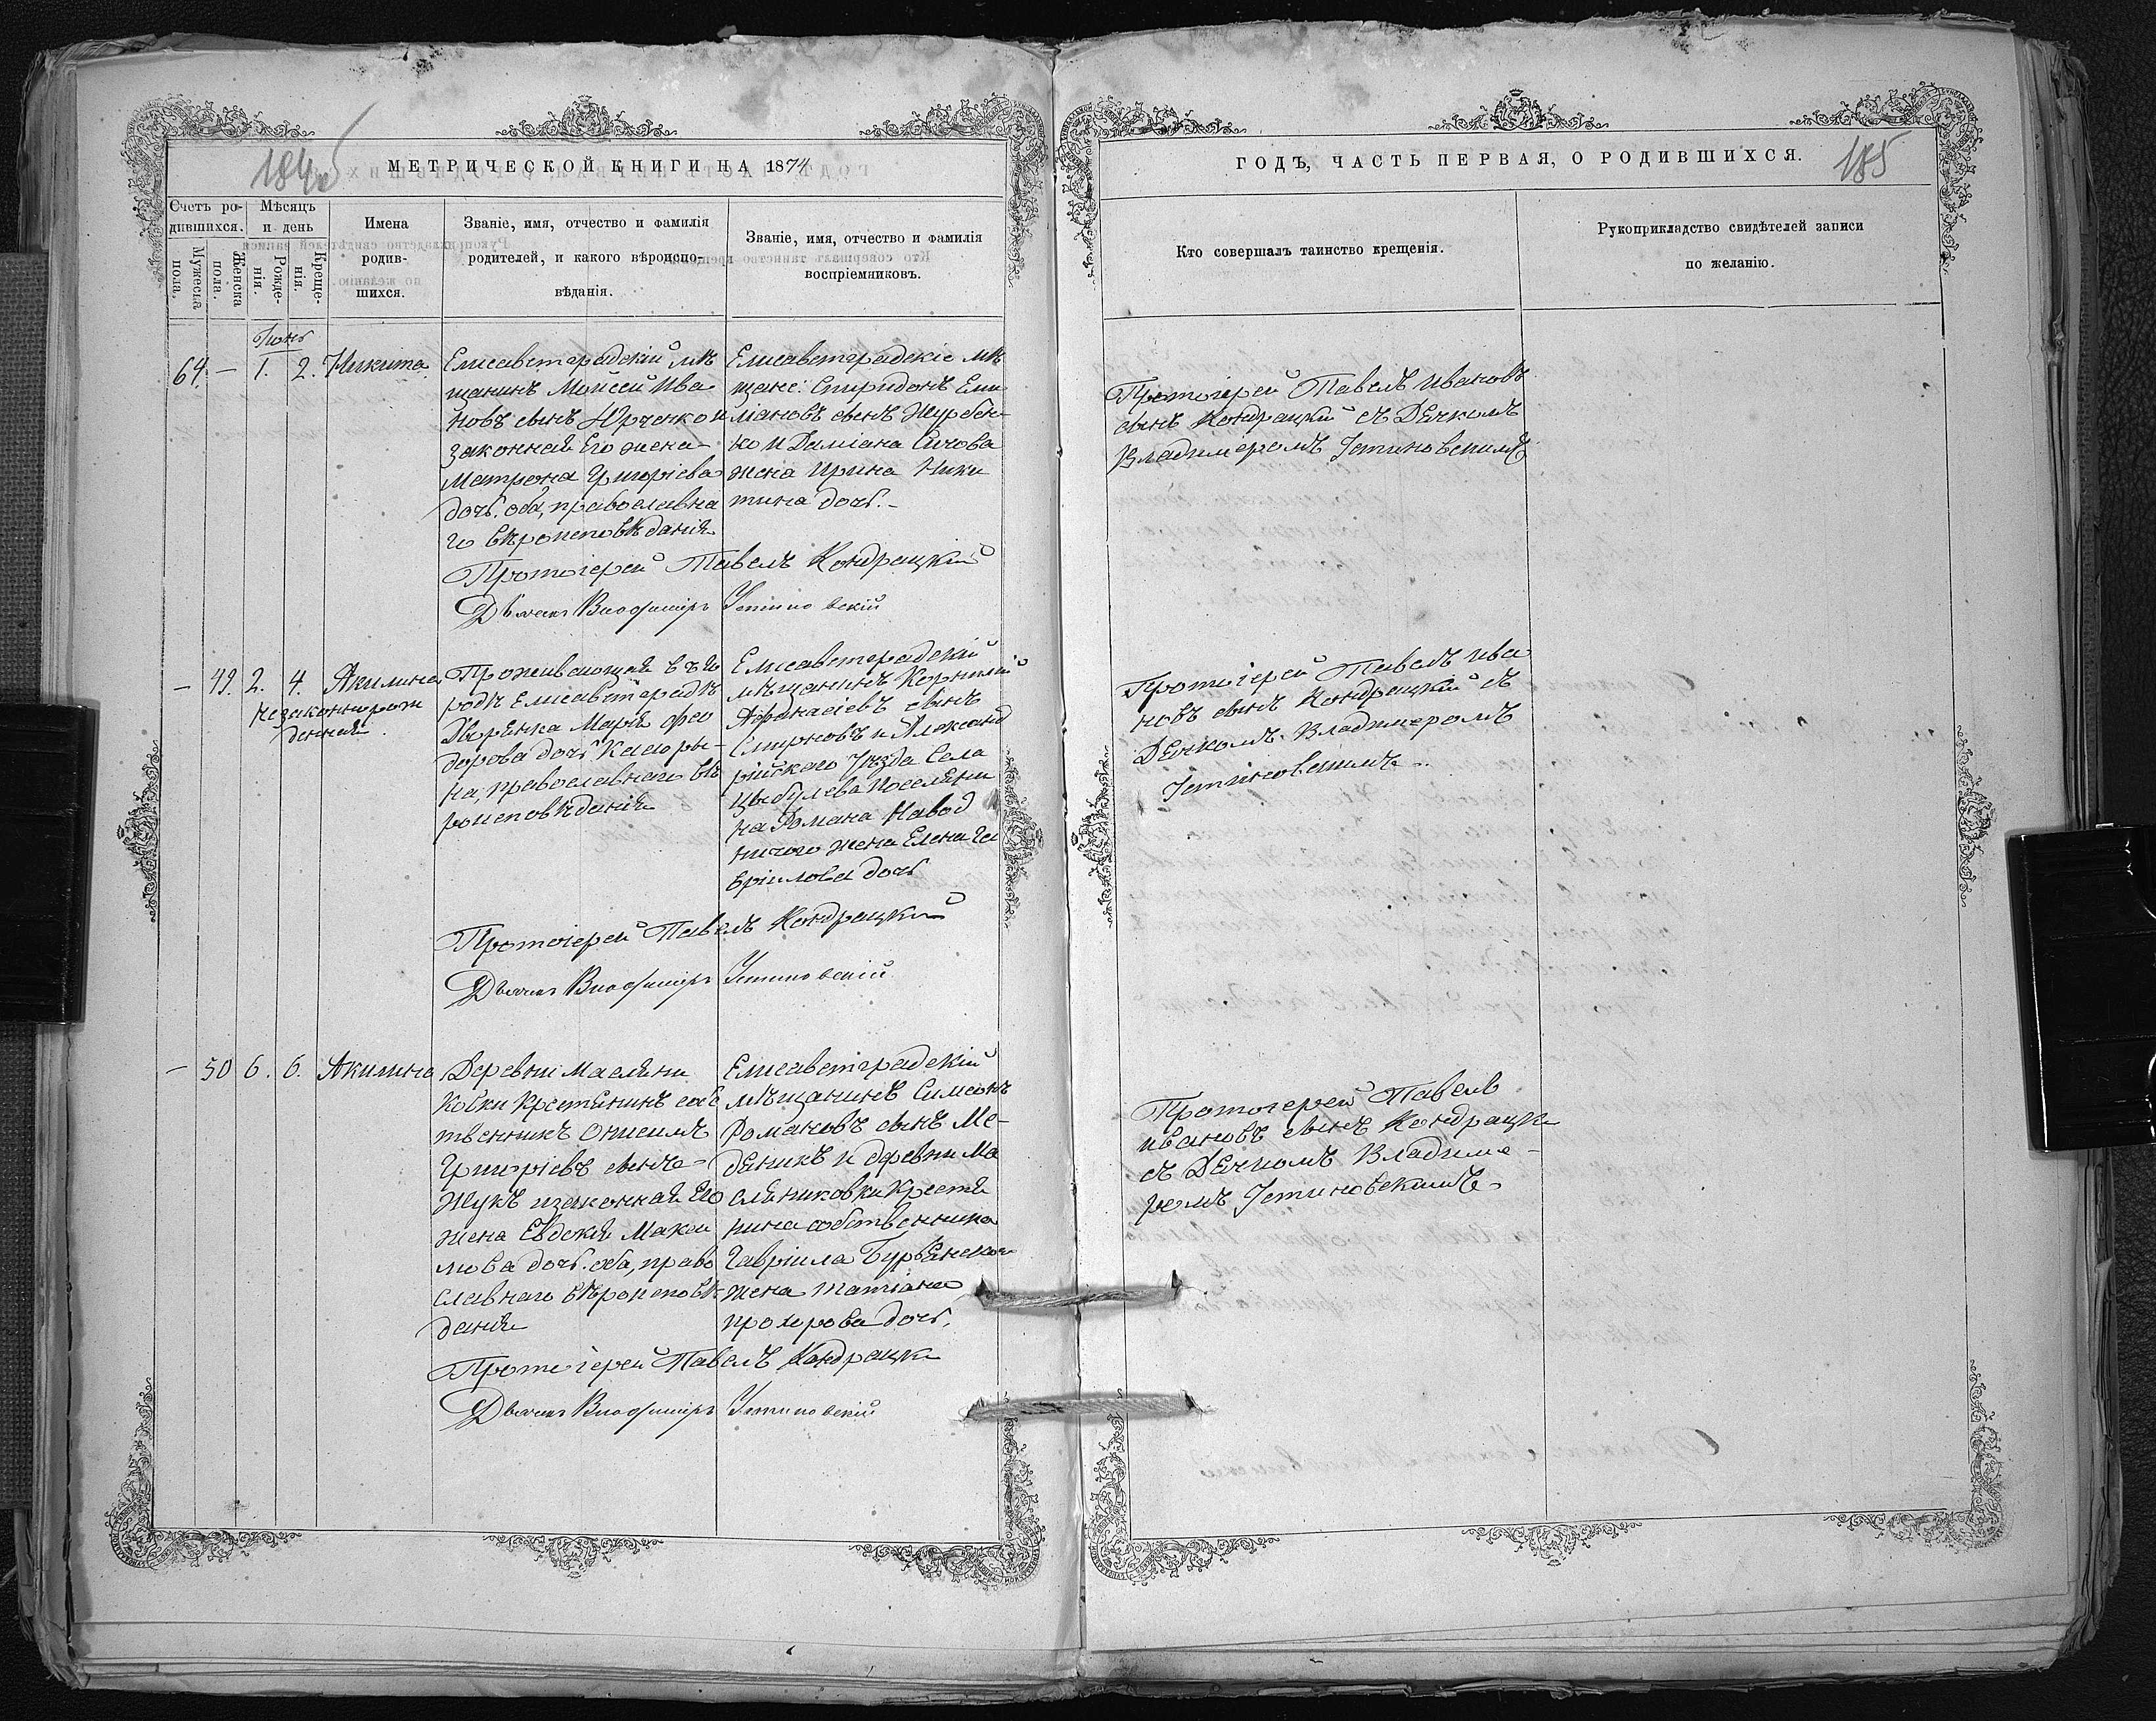 184 об
МЕТРИЧЕСКОЙ КНИГИ НА 1874
Счетъ ро-
дившихся.
Мужеска
пола.
Женска
пола.
Мѣсяцъ
и день
Рожде-
нія.
Креще-
нія.
Имена
родив-
шихся.
Званіе, имя, отчество и фамилія
родителей, и какого вѣроиспо-
вѣданія.
Званіе, имя, отчество и фамилія
воспріемниковъ.
Іюнь
64. — 1. 2. Никита.
Елисаветградскій мѣ
щанинъ Моисей Ива
новъ сынъ Юрченко и
законная Его жена
Матрона Григоріева
дочь. оба, православна
го вѣроисповѣданія
Елисаветградскіе мѣ
щане: Спиридонъ Еми
ліановъ сынъ Журбен-
ко и Даміана Сичова
жена Ирина Ники
тина дочь.-
Протоіерей Павелъ Кондрацкій
Дьячекъ Владимiръ Устиновскій
— 49. 2. 4. Акилина
незаконнорож
денная.
Проживающая въ го
родѣ Елисаветградѣ
Дворянка Марія Фео
дорова дочь
на, православнаго вѣ
роисповѣданія
Елисаветградскій
мѣщанинъ Корнилій
Афанасіевъ сынъ
Смирновъ и Александ
рійскаго Уѣзда Села
Цыбулева Поселяни
на Романа Навод
ничого жена Елена Га
вріилова дочь
Протоіерей Павелъ Кондрацкій
Дьячекъ Владимiръ Устиновскій
— 50 6. 6. Акилина
Деревни Масляни
ковки Крестянинъ собс
твенникъ Онисимъ
Григоріевъ сынъ
Жукъ и законная Его
жена Евдокія Макси
мова дочь. оба, право
славнаго вѣроисповѣ
данія
Елисаветградскій
мѣщанинъ Симеонъ
Романовъ сынъ Ме-
дяникъ и деревни Ма
сляниковки Крестя
нина собственника
Гавріила
жена Татіана
Прохорова дочь.
Протоіерей Павелъ Кондрацкій
Дьячекъ Владимiръ Устиновскій
ГОДЪ, ЧАСТЬ ПЕРВАЯ, О РОДИВШИХСЯ.
185
Кто совершалъ таинство крещенія.
Рукоприкладство свидѣтелей записи
по желанію.
Протоіерей Павелъ Ивановъ
сынъ Кондрацкій съ Дячкомъ
Владимеромъ Устиновскимъ
Протоіерей Павелъ Ива
новъ сынъ Кондрацкій съ
Дячкомъ Владимеромъ
Устиновскимъ.
Протоіерей Павелъ
Ивановъ сынъ Кондрацкі
съ Дячкомъ Владиме-
ромъ Устиновскимъ.